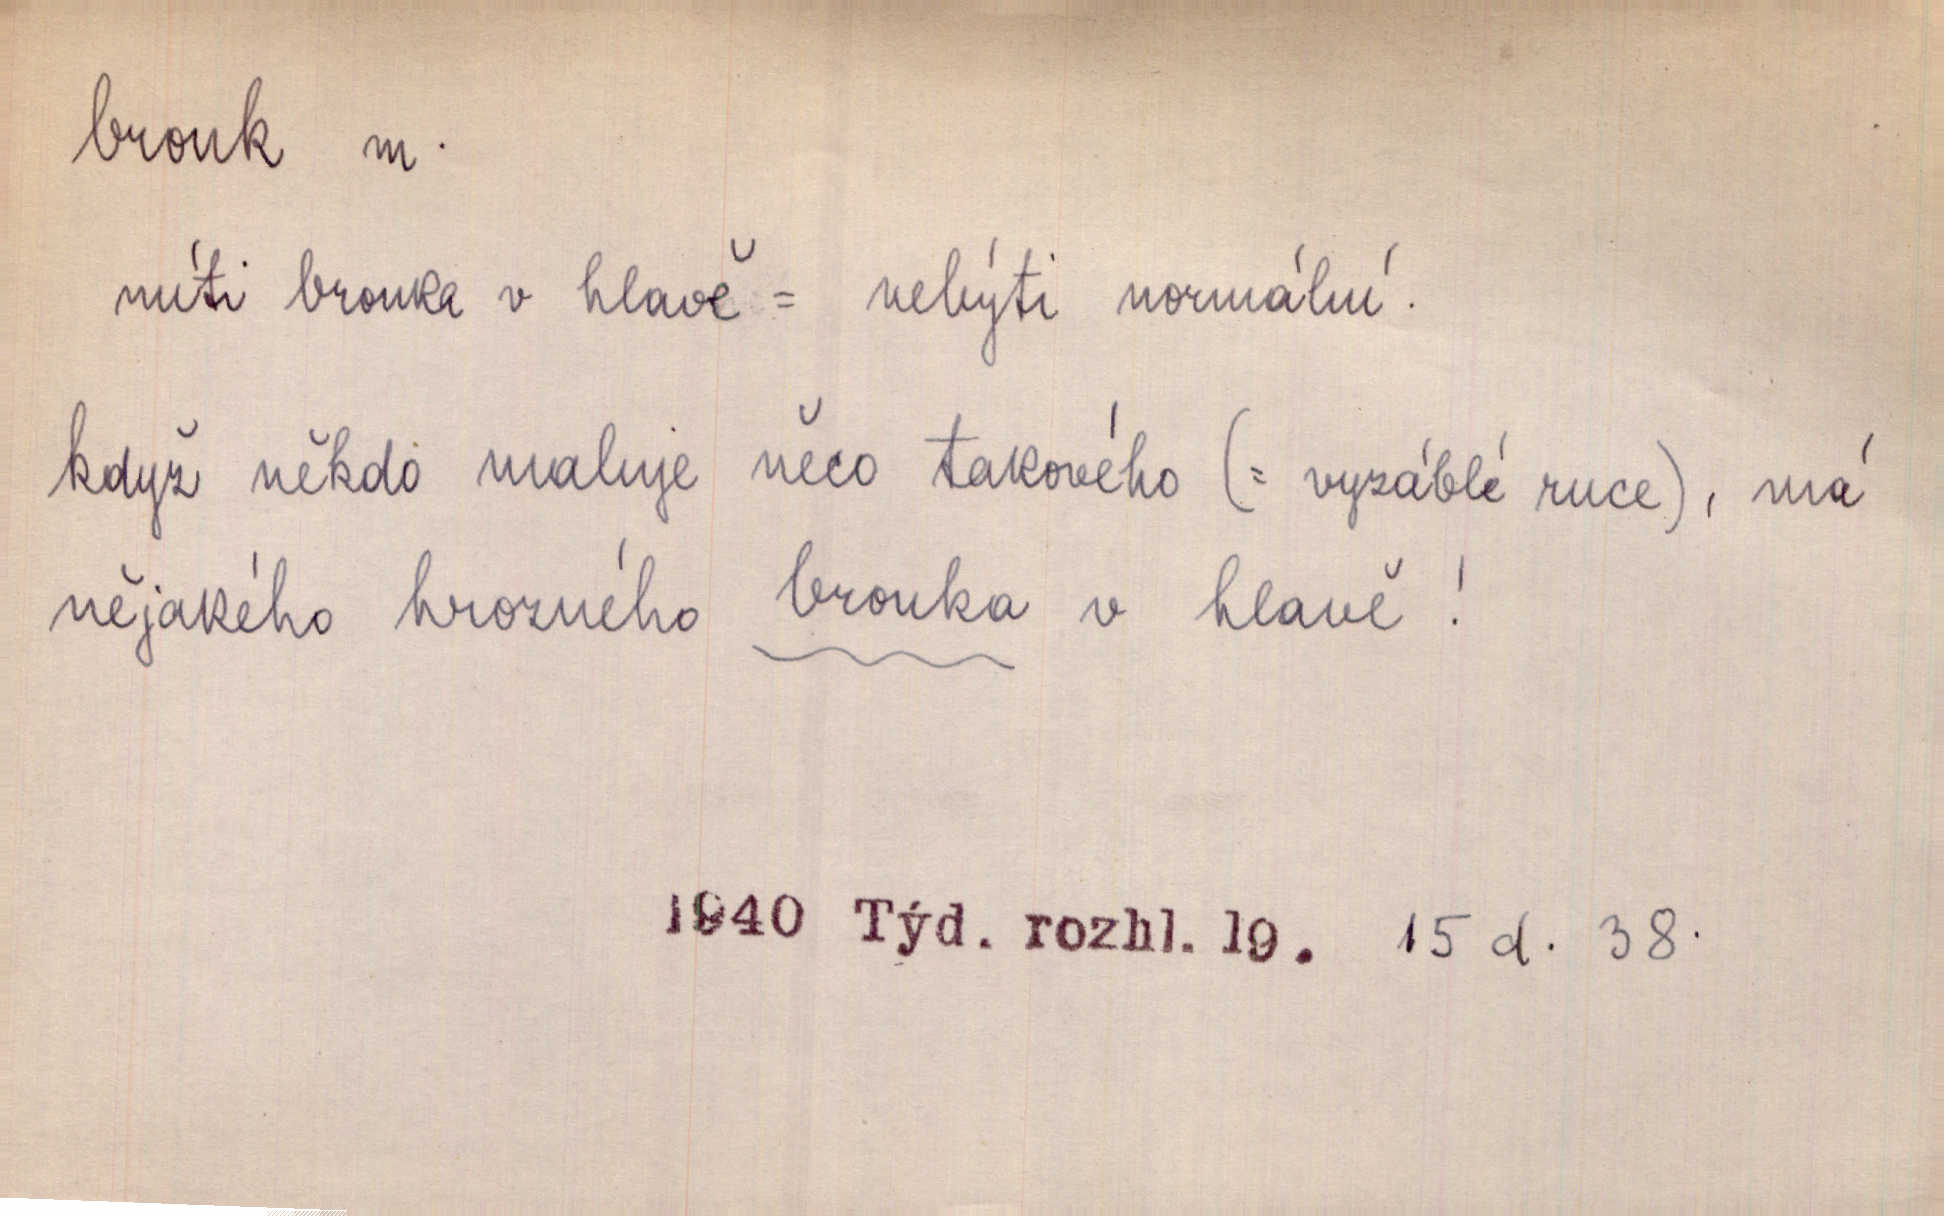 brouk m.
míti brouka v hlavě = nebýti normální.
když někdo maluje něco takového (= vyzáblé ruce), má
nějakého hrozného brouka v hlavě!
1940 Týd. rozhl. 19. 15 d. 38.